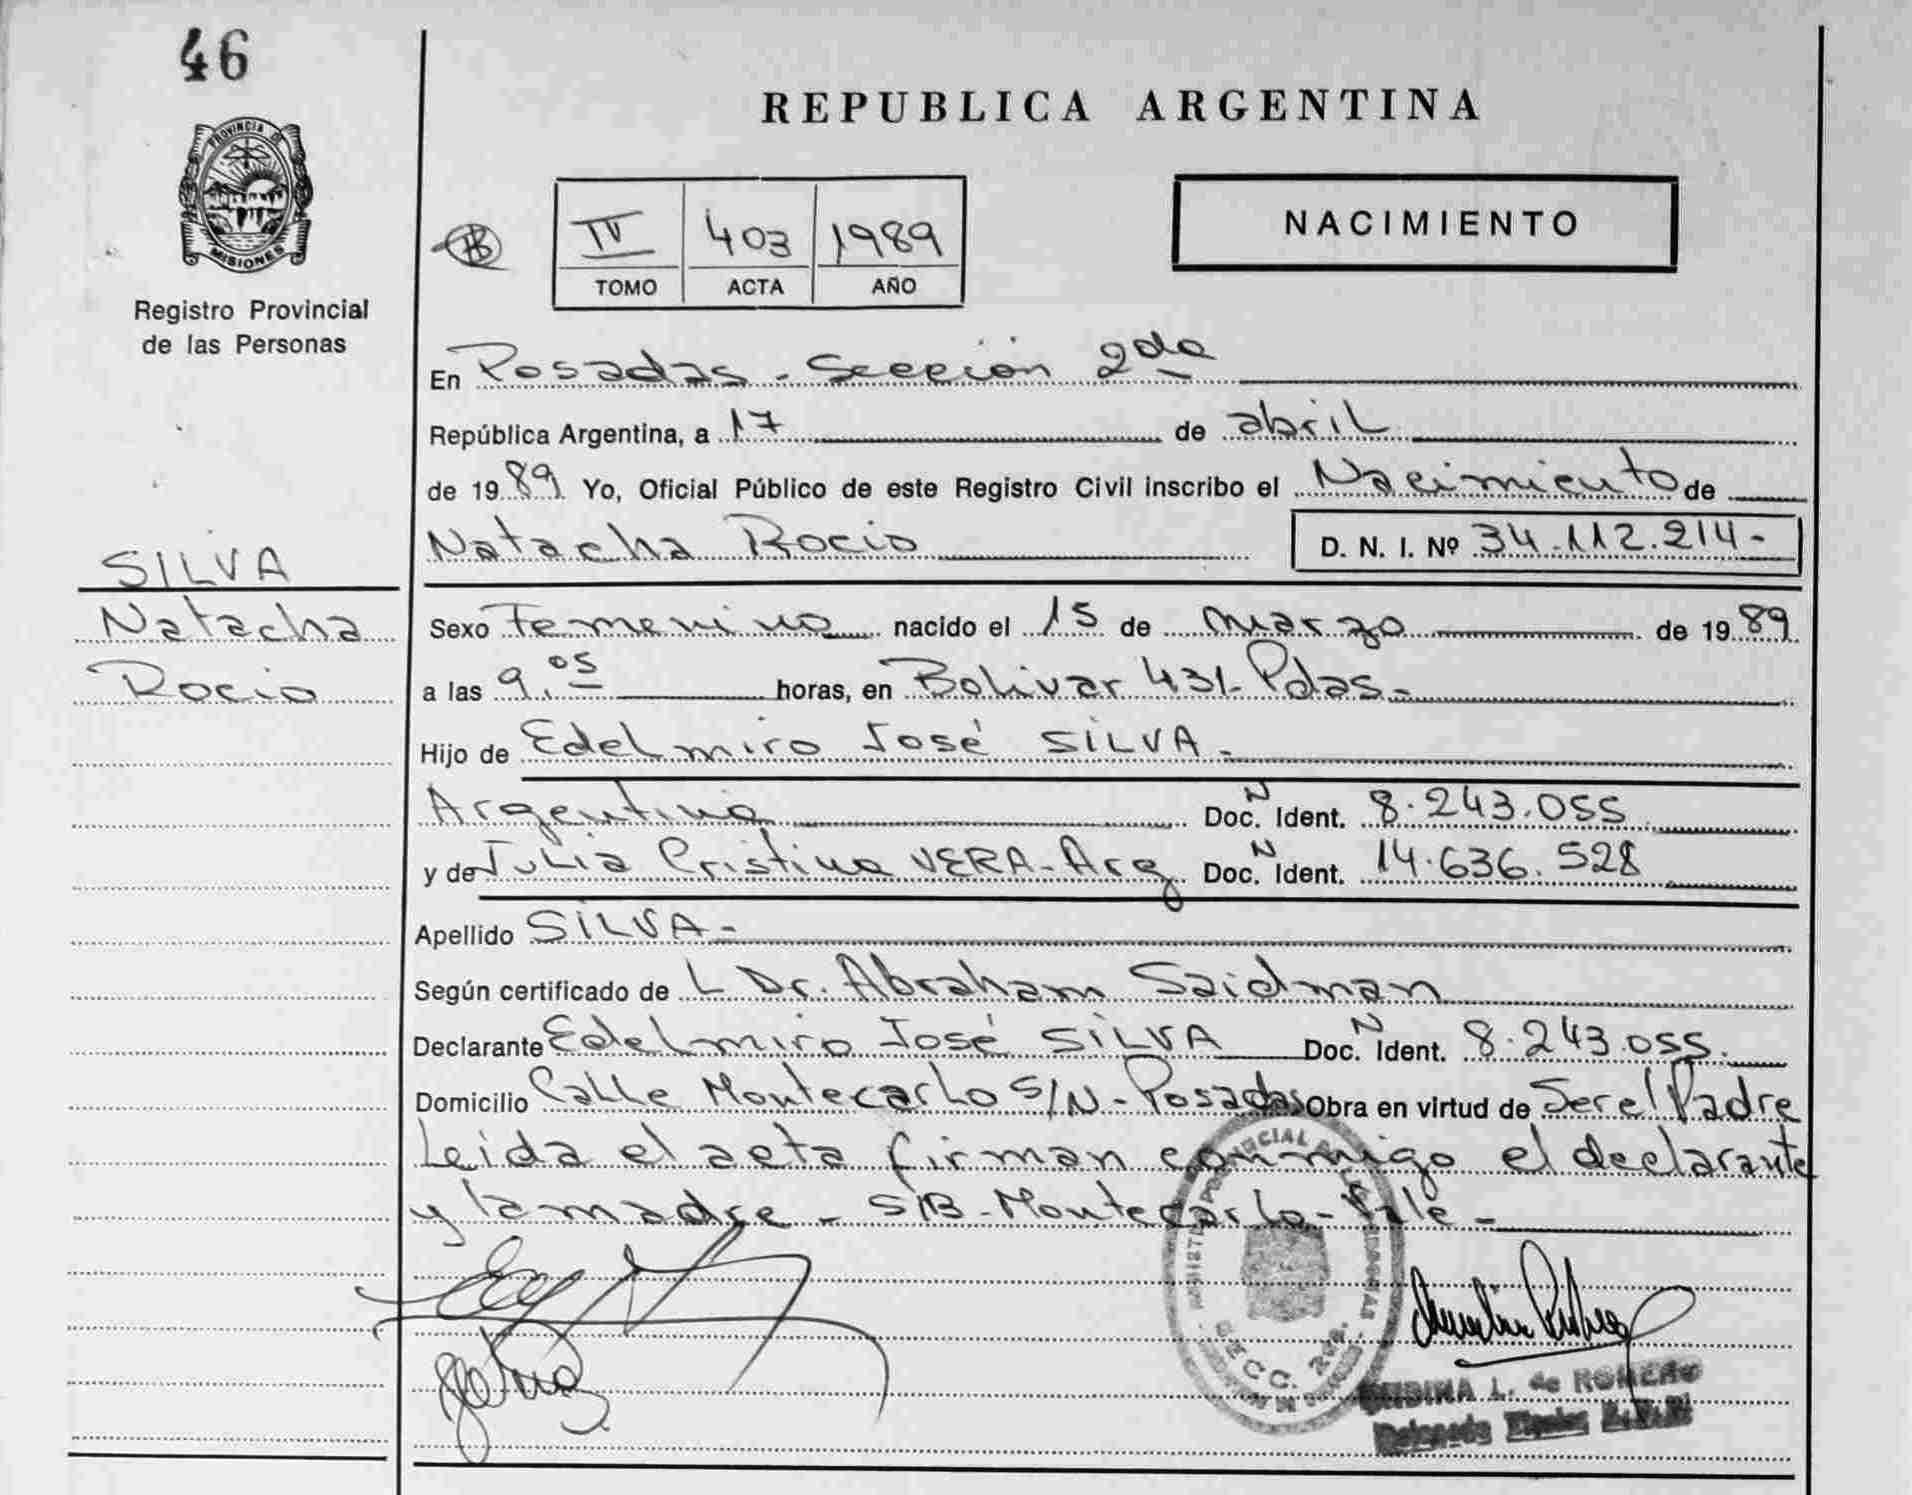 46
PROVINCIA DE
MISIONES
Registro Provincial
de las Personas
REPUBLICA ARGENTINA
NACIMIENTO
IV 403 1989
TOMO ACTA AÑO
En Posadas - Sección 2da
República Argentina, a 17 de abril
de 1989 Yo, Oficial Público de este Registro Civil inscribo el Nacimiento de
Natacha Rocio D. N. I. Nº 34.112.214-
SILVA
Natacha
Rocio
Sexo Femenino nacido el 15 de marzo de 1989
a las 9.05 horas, en Bolivar 431- Pdas-
Hijo de Edelmiro José SILVA-
Argentino Doc. N Ident. 8.243.055
y de Julia Cristina VERA-Arg Doc. N Ident. 14.636.528
Apellido SILVA-
Según certificado de L Dr. Abraham Saidman
Declarante Edelmiro José SILVA Doc. N Ident. 8.243.055.
Domicilio Calle Montecarlo S/N-Posadas Obra en virtud de Ser el Padre
Leida el acta firman conmigo el declarante
y la madre - S/B-Montecarlo-Vale-
SECC. 2da.
L. de ROMERO